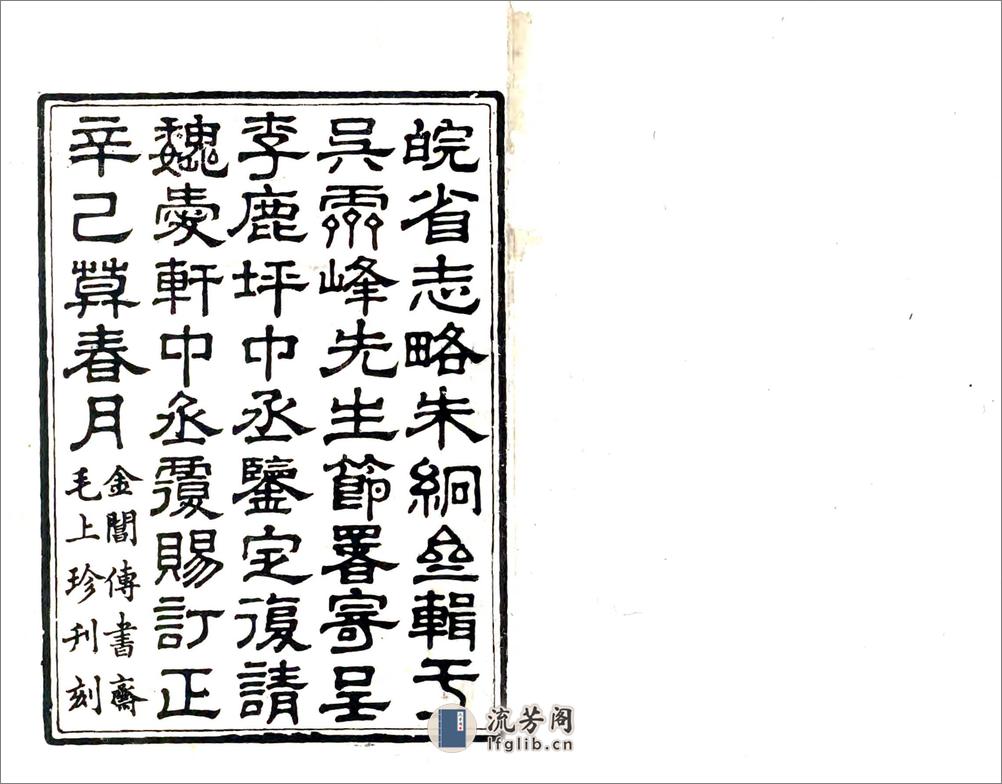 皖省志略朱絅亝輯于
吳霝峰先生節署寄呈
李鹿坪中丞鑒定復請
魏愛軒中丞覆賜訂正
辛巳莫春月
金閶傳書齋
毛上珍刊刻
流芳阁
lfglib.cn